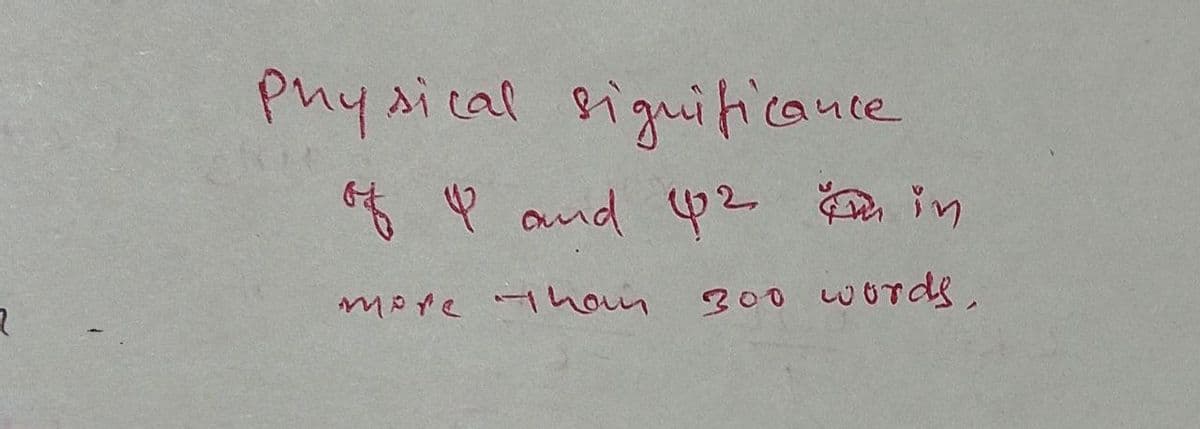 Physical significance
of ψ and ψ2 in
more than 300 words.